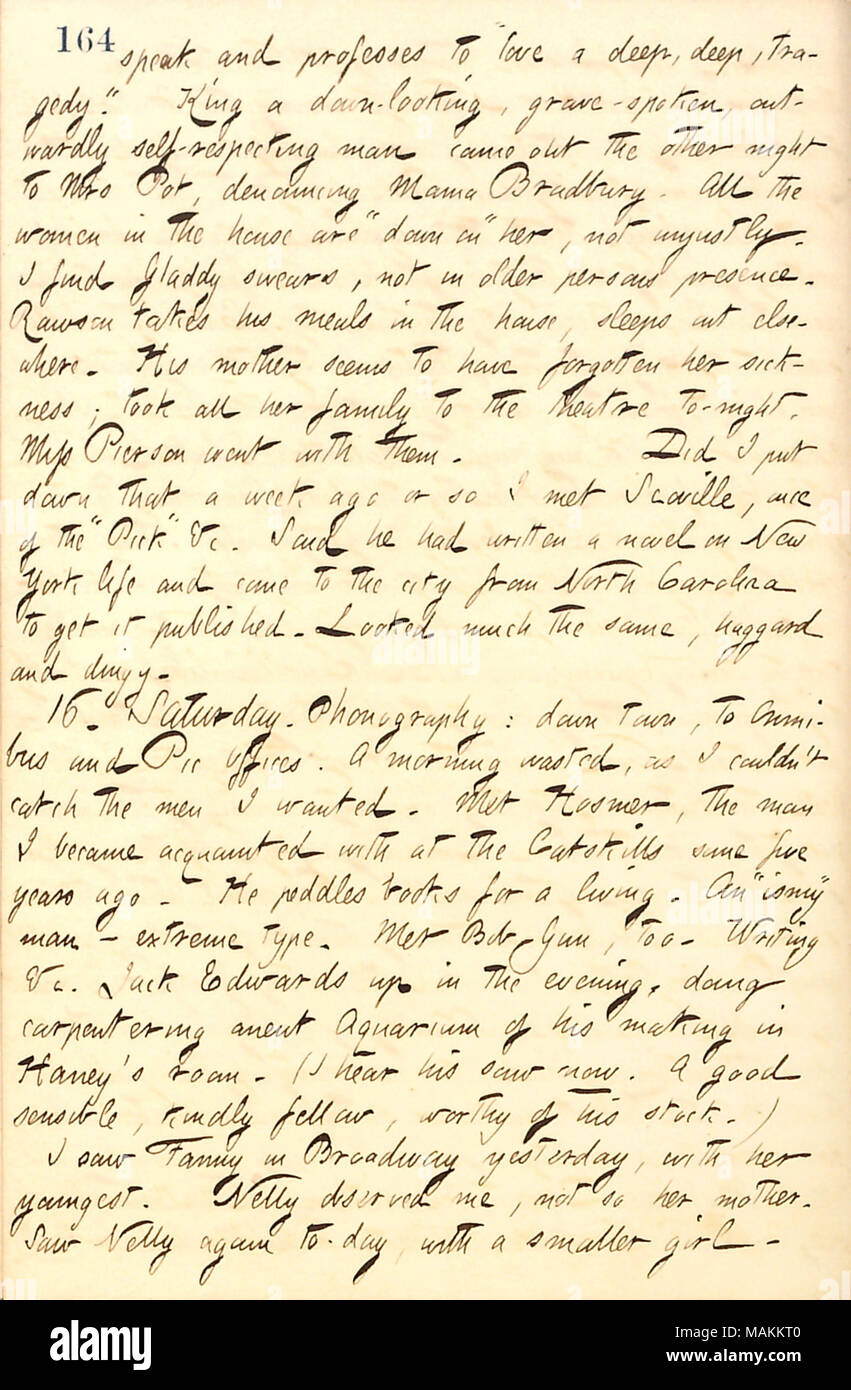 164
speak and professes to "love a deep, deep, tra-
gedy." King a down-looking, grave-spoken, out-
wardly self-respecting man came out the other night
to Mrs Pot, denouncing Mama Bradbury. All the
women in the house are "down on" her, not unjustly.
I find Gladdy swears, not in older persons presence.
Rawson takes his meals in the house, sleeps out else-
where. His mother seems to have forgotten her sick-
ness; took all her family to the theatre to-night.
Miss Pierson went with them. Did I put
down that a week ago or so I met Scoville, once
of the "Pick" &c. Said he had written a novel on New
York life and come to the city from North Carolina
to get it published. Looked much the same, haggard
and dingy.
16. Saturday. Phonography: down town, to Omni-
bus and Pic Offices. A morning wasted, as I couldn't
catch the men I wanted. Met Hosmer, the man
I became acquainted with at the Catskills some five
years ago. He peddles books for a living. An "ismy"
man - extreme type. Met Bob Gun, too. Writing
&c. Jack Edwards up in the evening, doing
carpentering anent Aquarium of his making in
Haney's room. (I hear his saw now. A good
sensible, kindly fellow, worthy of his stock.)
I saw Fanny in Broadway yesterday, with her
youngest. Nelly observed me, not so her mother.
Saw Nelly again to-day, with a smaller girl -
alamy
alamy stock photo
MAKKT0
www.alamy.com